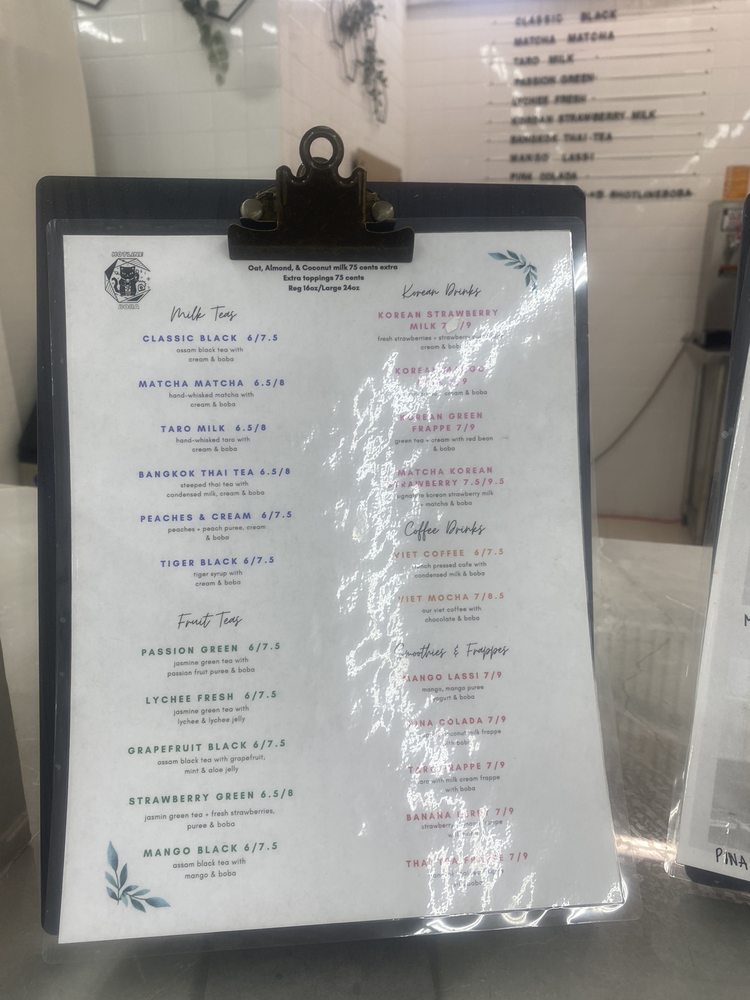 CLASSIC BLACK
MATCHA MATCHA
TARO MILK
PASSION GREEN
LYCHEE FRESH
KOREAN STRAWBERRY MILK
BANGKOK THAI TEA
MANGO LASSI
PINA COLADA
@HOTLINEBOBA
HOTLINE
BOBA
Oat, Almond, & Coconut milk 75 cents extra
Extra toppings 75 cents
Reg 16oz/Large 24oz
Milk Teas
CLASSIC BLACK 6/7.5
assam black tea with
cream & boba
MATCHA MATCHA 6.5/8
hand-whisked matcha with
cream & boba
TARO MILK 6.5/8
hand-whisked taro with
cream & boba
BANGKOK THAI TEA 6.5/8
steeped thai tea with
condensed milk, cream & boba
PEACHES & CREAM 6/7.5
peaches + peach puree, cream
& boba
TIGER BLACK 6/7.5
tiger syrup with
cream & boba
Fruit Teas
PASSION GREEN 6/7.5
jasmine green tea with
passion fruit puree & boba
LYCHEE FRESH 6/7.5
jasmine green tea with
lychee & lychee jelly
GRAPEFRUIT BLACK 6/7.5
assam black tea with grapefruit,
mint & aloe jelly
STRAWBERRY GREEN 6.5/8
jasmin green tea + fresh strawberries,
puree & boba
MANGO BLACK 6/7.5
assam black tea with
mango & boba
Korean Drinks
KOREAN STRAWBERRY
MILK /9
fresh strawberries + strawberry
cream & boba
KOREAN MANGO
/9
cream & boba
KOREAN GREEN
FRAPPE 7/9
green tea + cream with red bean
& boba
MATCHA KOREAN
STRAWBERRY 7.5/9.5
signature korean strawberry milk
+ matcha & boba
Coffee Drinks
VIET COFFEE 6/7.5
french pressed cafe with
condensed milk & boba
VIET MOCHA 7/8.5
our viet coffee with
chocolate & boba
Smoothies & Frappes
MANGO LASSI 7/9
mango, mango puree
yogurt & boba
PINA COLADA 7/9
coconut milk frappe
with boba
TARO FRAPPE 7/9
taro with milk cream frappe
with boba
BANANA BERRY 7/9
strawberry frappe
THAI TEA FRAPPE 7/9
PINA